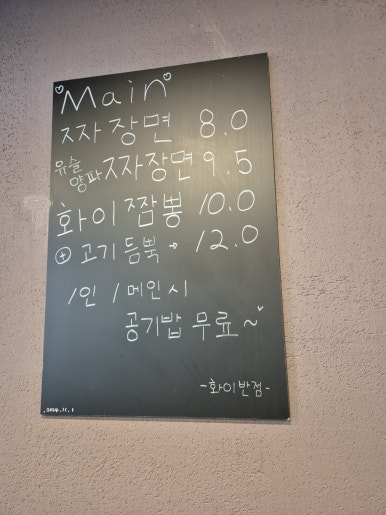 Main
짜장면 8.0
유슬양파짜장면 9.5
화이짬뽕 10.0
⊕ 고기듬뿍 → 12.0
1인 1메인시
공기밥 무료~
-화이반점-
2024.11.1